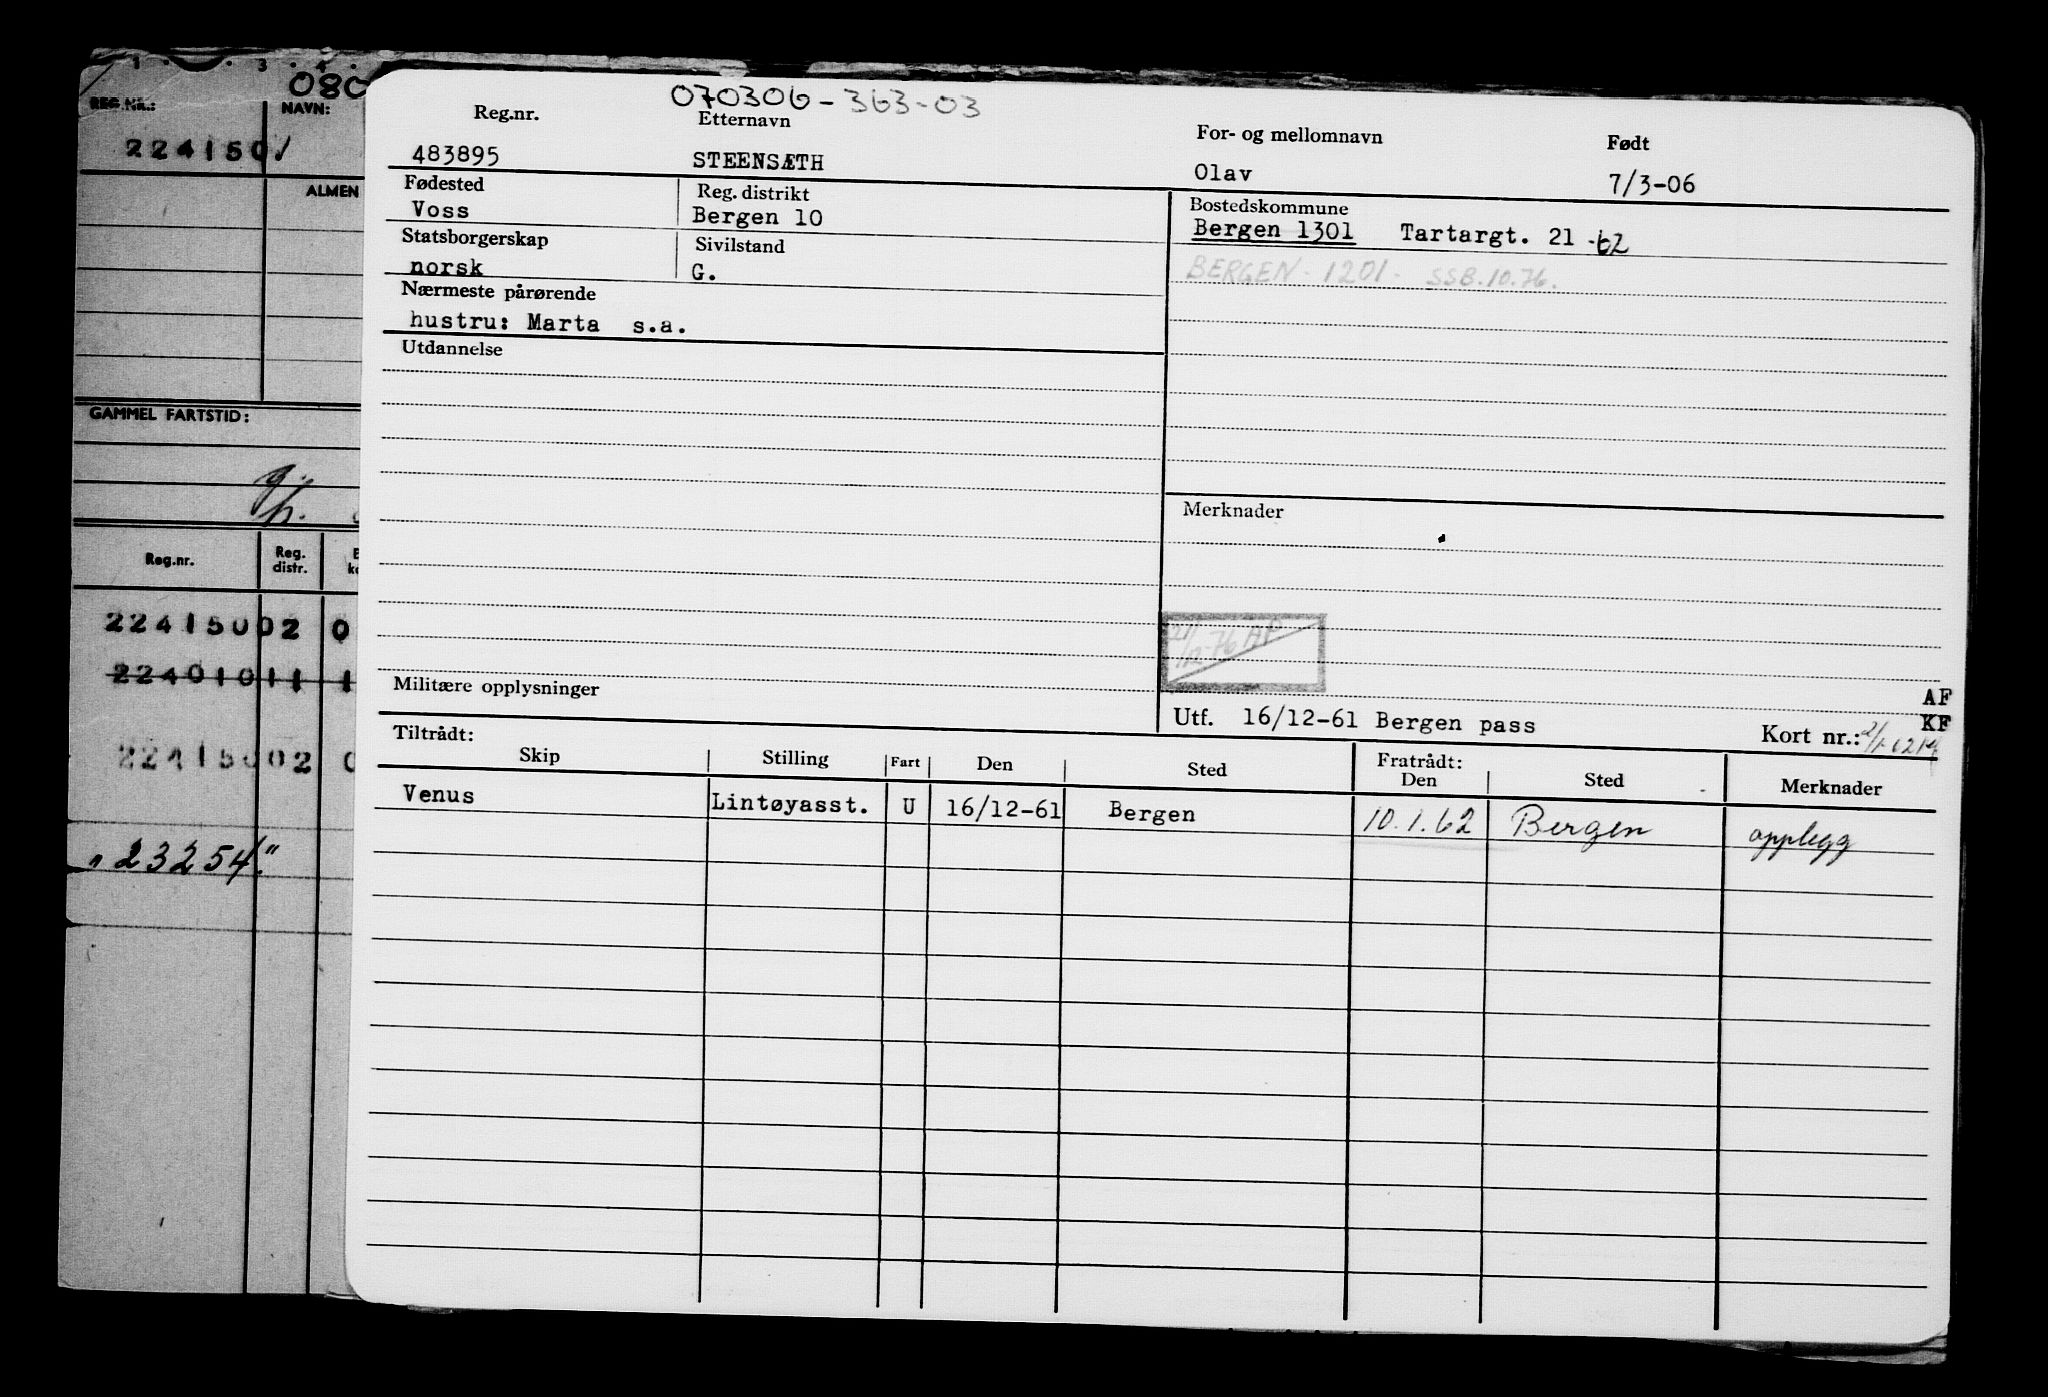 1 . . 3 . 4 .
080
REG.NR.:
NAVN:
2241501
ALMEN
GAMMEL FARTSTID:
Reg.nr.
Reg.
distr.
22415002 0
22401011 1
22415002 0
"23254."
070306-363-03
Reg.nr.
Etternavn
For- og mellomnavn
Født
483895
STEENSÆTH
Olav
7/3-06
Fødested
Reg. distrikt
Bostedskommune
Voss
Bergen 10
Bergen 1301 Tartargt. 21 -62
Statsborgerskap
Sivilstand
BERGEN - 1201 - SSB.10.76.
norsk
G.
Nærmeste pårørende
hustru: Marta s.a.
Utdannelse
Merknader
76 AP
Militære opplysninger
AF
KF
Utf. 16/12-61 Bergen pass
Kort nr.:
Tiltrådt:
Fratrådt:
Skip Stilling Fart Den Sted Den Sted Merknader
Venus Lintøyasst. U 16/12-61 Bergen 10.1.62 Bergen opplegg